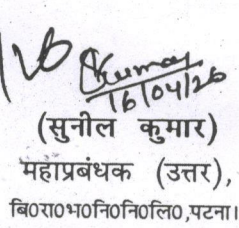 Kumar
16/04/26
(सुनील कुमार)
महाप्रबंधक (उत्तर),
बि0रा0भ0नि0नि0लि0,पटना।